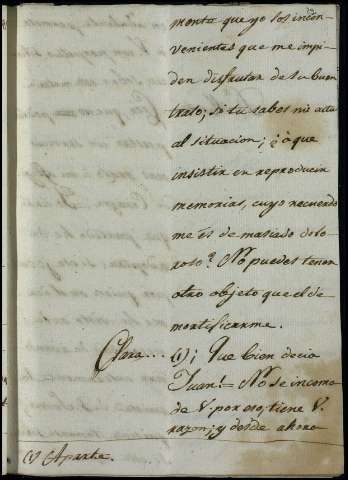 monta que yo los incon-
venientes que me impi-
den disfrutar de su buen
trato; si tu sabes mi actu
al situacion; ¿à que
insistir en reproducir
memorias, cuyo recuerdo
me és de masiado dolo-
roso? No puedes tener
otro objeto que el de
mortificarme.
Clara... (1) ¡Que bien decia
Juan!= No se incomo
de V. por eso, tiene V.
razon; y desde ahora
(1) Aparte.